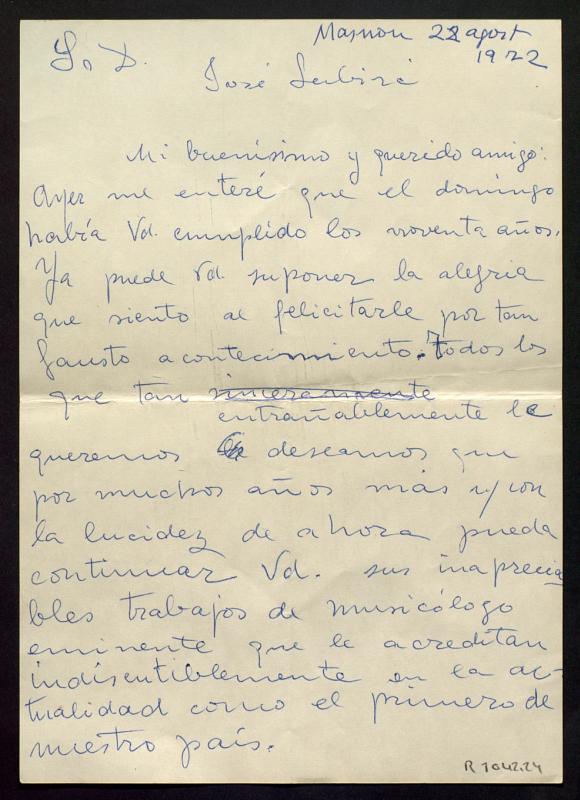 Masnou 22 agost
1972
Sr. D.
José Subirá
Mi buenísimo y querido amigo:
Ayer me enteré que el domingo
había Vd. cumplido los noventa años.
Ya puede Vd. suponer la alegria
que siento al felicitarle por tan
fausto acontecimiento. Todos los
que tan sinceramente
entrañablemente le
queremos deseamos que
por muchos años más y con
la lucidez de ahora pueda
continuar Vd. sus inaprecia
bles trabajos de musicólogo
eminente que le acreditan
indiscutiblemente en la ac-
tualidad como el primero de
nuestro país.
R 1042.24